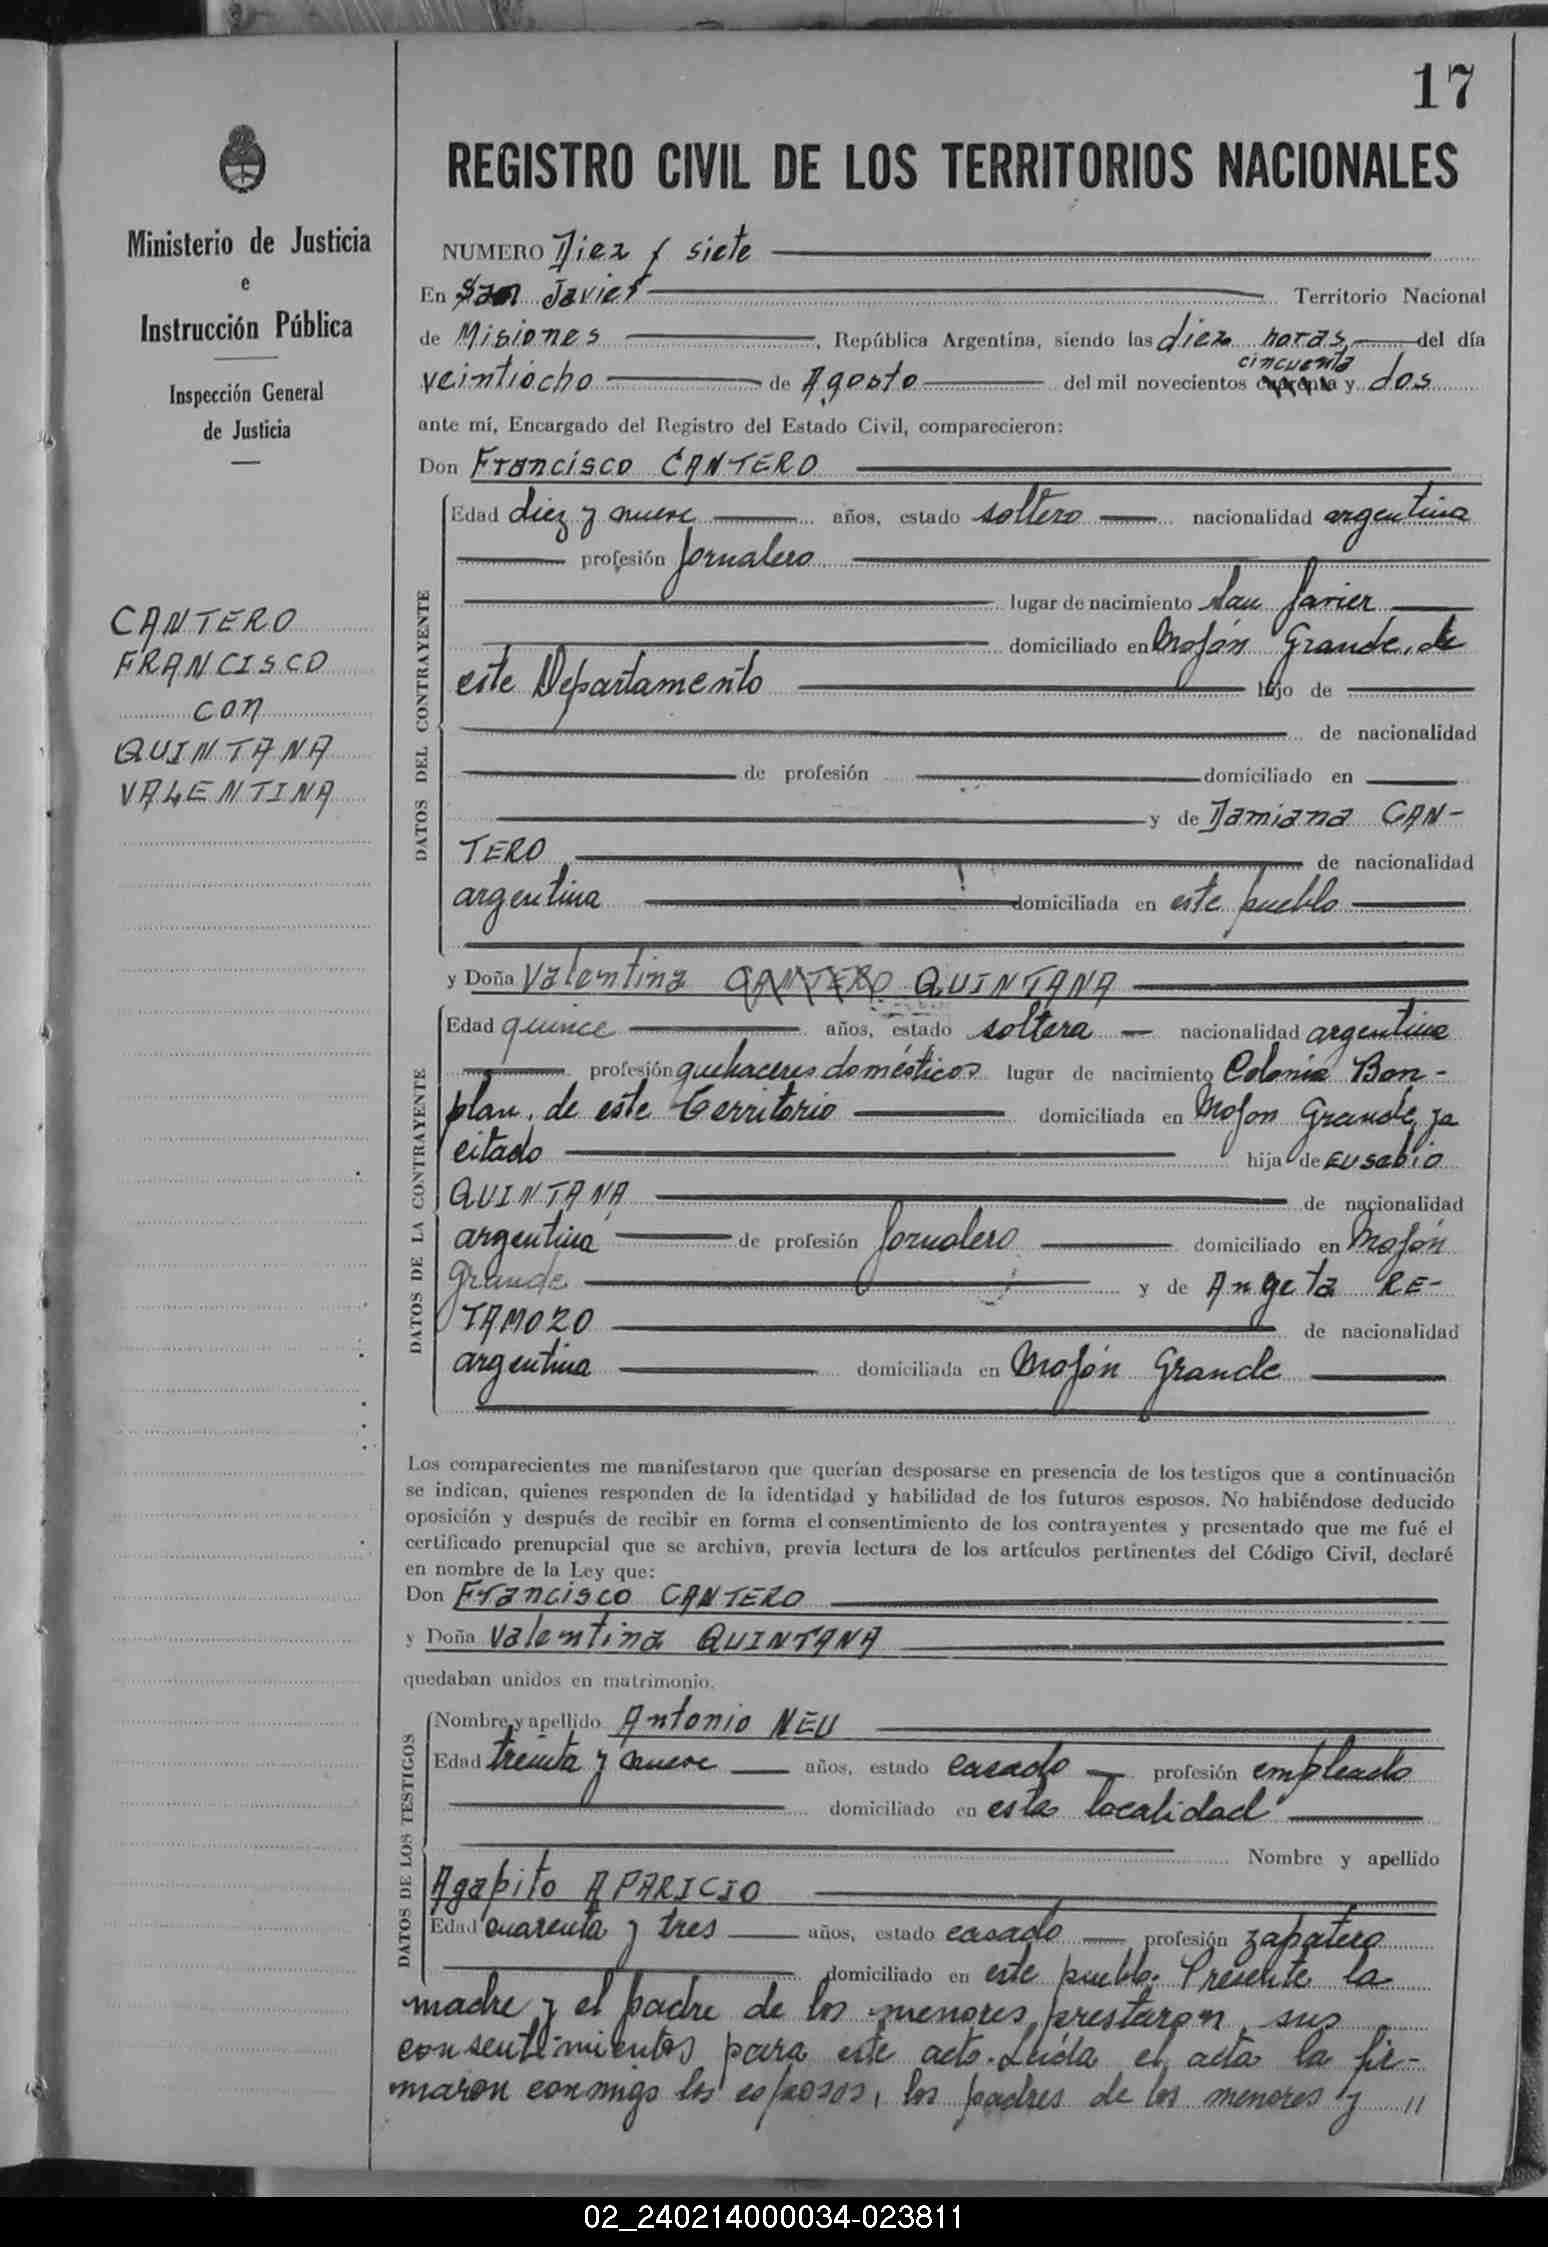 17
REGISTRO CIVIL DE LOS TERRITORIOS NACIONALES
Ministerio de Justicia
e
Instrucción Pública
Inspección General
de Justicia
CANTERO
FRANCISCO
con
QUINTANA
VALENTINA
NUMERO Diez y siete
En San Javier Territorio Nacional
de Misiones, República Argentina, siendo las diez horas, del día
cincuenta
veintiocho de Agosto del mil novecientos cuarenta y dos
ante mí, Encargado del Registro del Estado Civil, comparecieron:
Don Francisco CANTERO
DATOS DEL CONTRAYENTE
Edad diez y nueve años, estado soltero nacionalidad argentina
profesión Jornalero
lugar de nacimiento San Javier
domiciliado en Mojón Grande, de
este Departamento hijo de
de nacionalidad
de profesión domiciliado en
y de Damiana CAN-
TERO de nacionalidad
argentina domiciliada en este pueblo
y Doña Valentina CANTERO QUINTANA
DATOS DE LA CONTRAYENTE
Edad quince años, estado soltera nacionalidad argentina
profesión quehaceres domésticos lugar de nacimiento Colonia Bon-
plan, de este Territorio domiciliada en Mojon Grande, ya
citado hija de Eusebio
QUINTANA de nacionalidad
argentina de profesión Jornalero domiciliado en Mojón
Grande y de Angela RE-
TAMOZO de nacionalidad
argentina domiciliada en Mojón Grande
Los comparecientes me manifestaron que querían desposarse en presencia de los testigos que a continuación
se indican, quienes responden de la identidad y habilidad de los futuros esposos. No habiéndose deducido
oposición y después de recibir en forma el consentimiento de los contrayentes y presentado que me fué el
certificado prenupcial que se archiva, previa lectura de los artículos pertinentes del Código Civil, declaré
en nombre de la Ley que:
Don Francisco CANTERO
y Doña Valentina QUINTANA
quedaban unidos en matrimonio.
DATOS DE LOS TESTIGOS
Nombre y apellido Antonio NEU
Edad treinta y nueve años, estado casado profesión empleado
domiciliado en esta localidad
Nombre y apellido
Agapito APARICIO
Edad cuarenta y tres años, estado casado profesión zapatero
domiciliado en este pueblo. Presente la
madre y el padre de los menores prestaron sus
consentimientos para este acto. Leída el acta la fir-
maron conmigo los esposos, los padres de los menores y //
02_240214000034-023811